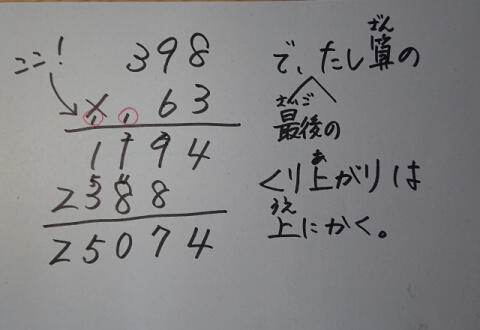 ここ！
398
× 63
1 1
1194
5 4
2388
25074
ざん
で、たし算の
さいご
最後の
あ
くり上がりは
うえ
上にかく。